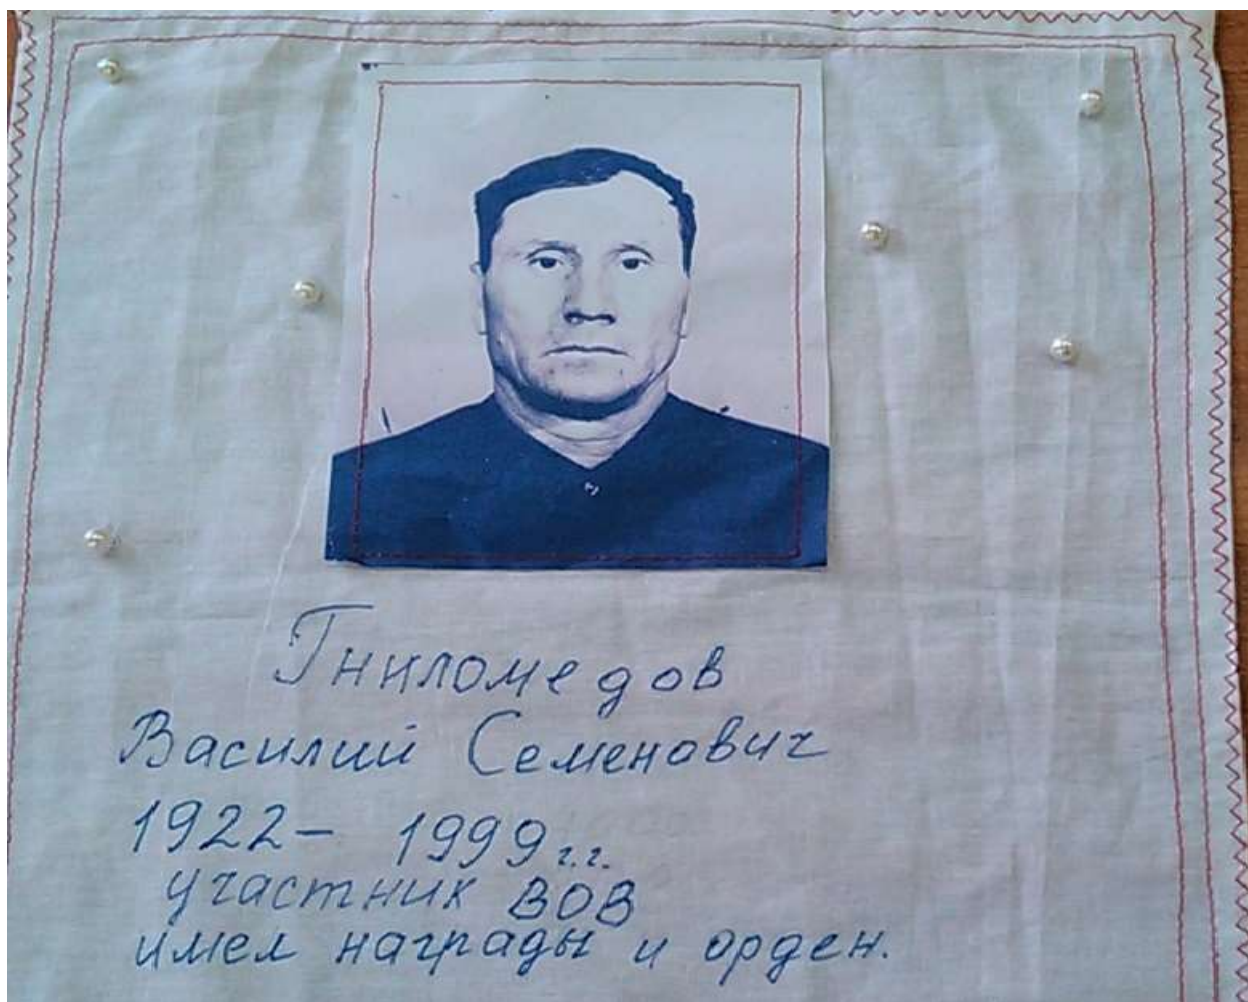 Гниломедов
Василий Семенович
1922 - 1999 г.г.
участник ВОВ
имел награды и орден.